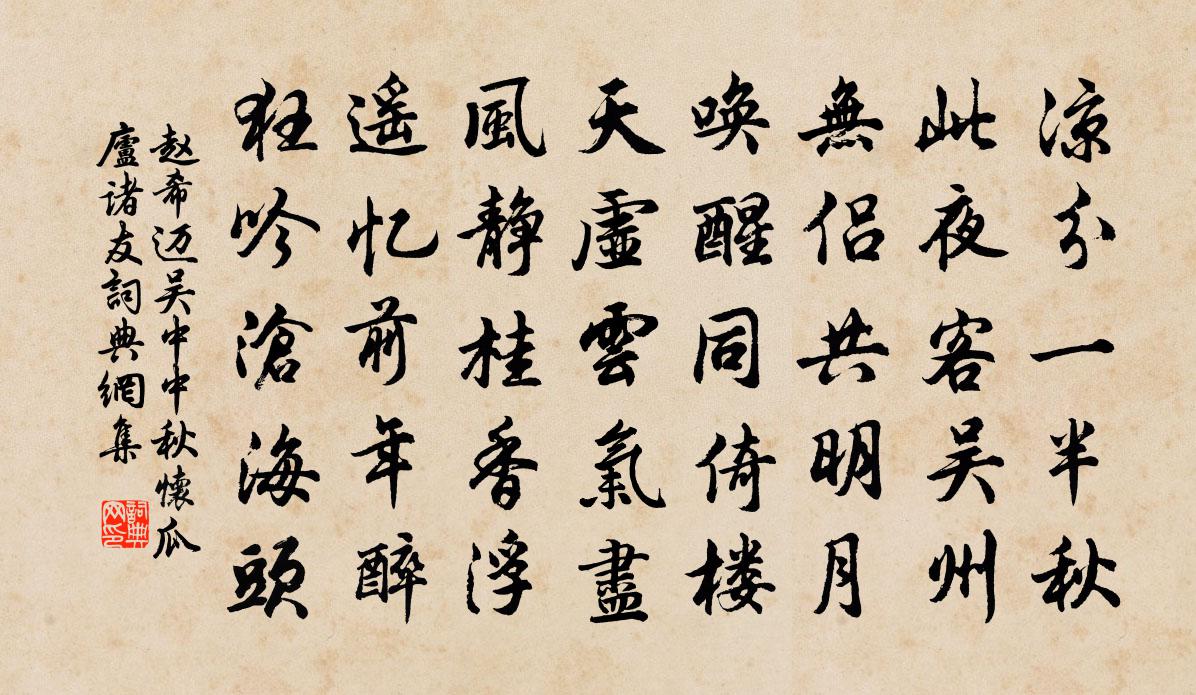 涼分一半秋
此夜客吴州
無侣共明月
唤醒同倚楼
天虚雲氣盡
風静桂香浮
遥忆前年醉
狂吟滄海頭
赵希迈吴中中秋懷瓜
廬诸友詞典網集
詞典网印